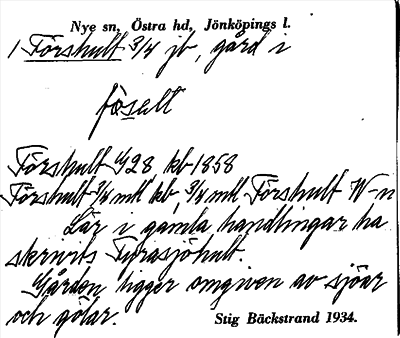 Nye sn, Östra hd, Jönköpings l.
1 Förshult 3/4 jb, gård i
fösalt
Förshult 1728 kb 1858
Förshult 3/4 mtl kb, 3/4 mtl Förshult W-n
Lär i gamla handlingar ha
skrivits Fyrasjöhult.
Gården ligger omgiven av sjöar
och gölar.
Stig Bäckstrand 1934.